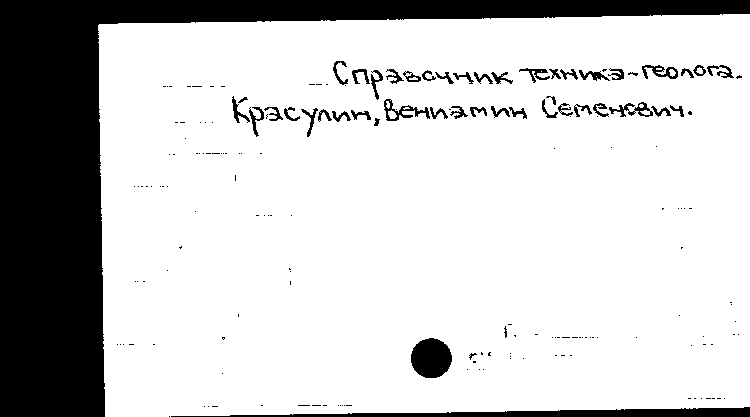 Справочник техника-геолога.
Красулин, Вениамин Семенович.